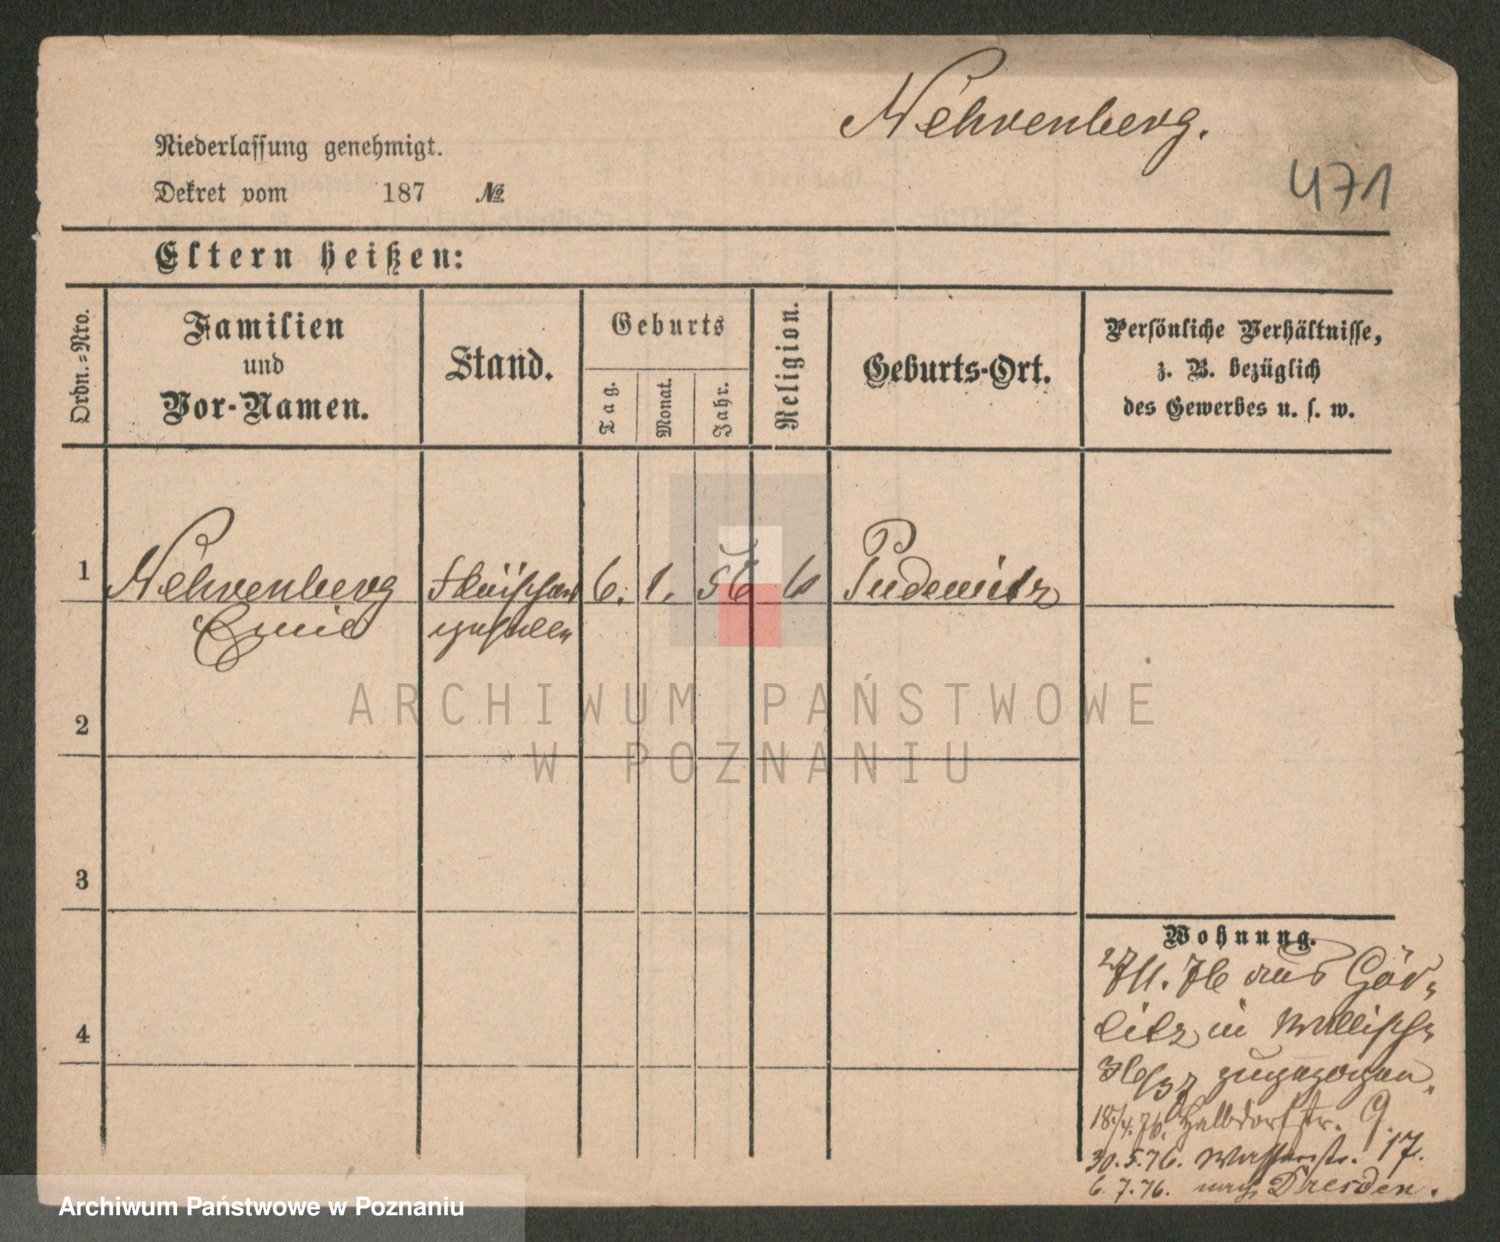 Nehrenberg.
471
Niederlassung genehmigt.
Dekret vom 187 №
Eltern heißen:
Ordn.-Nro.
Familien
und
Vor-Namen.
Stand.
Geburts
Tag.
Monat.
Jahr.
Religion.
Geburts-Ort.
Persönliche Verhältnisse,
z. B. bezüglich
des Gewerbes u. s. w.
1 Nehrenberg Fleischer 6. 1. 56 Pudewitz
Emil geselle
2
3
4
Wohnung.
27/1. 76 aus Gör-
litz in Wallisch
36/37 zugezogen.
18./4. 76. Halbdorfstr. 9.
30. 5. 76. Wasserstr. 17.
6. 7. 76. nach Dresden.
ARCHIWUM PAŃSTWOWE
W POZNANIU
Archiwum Państwowe w Poznaniu